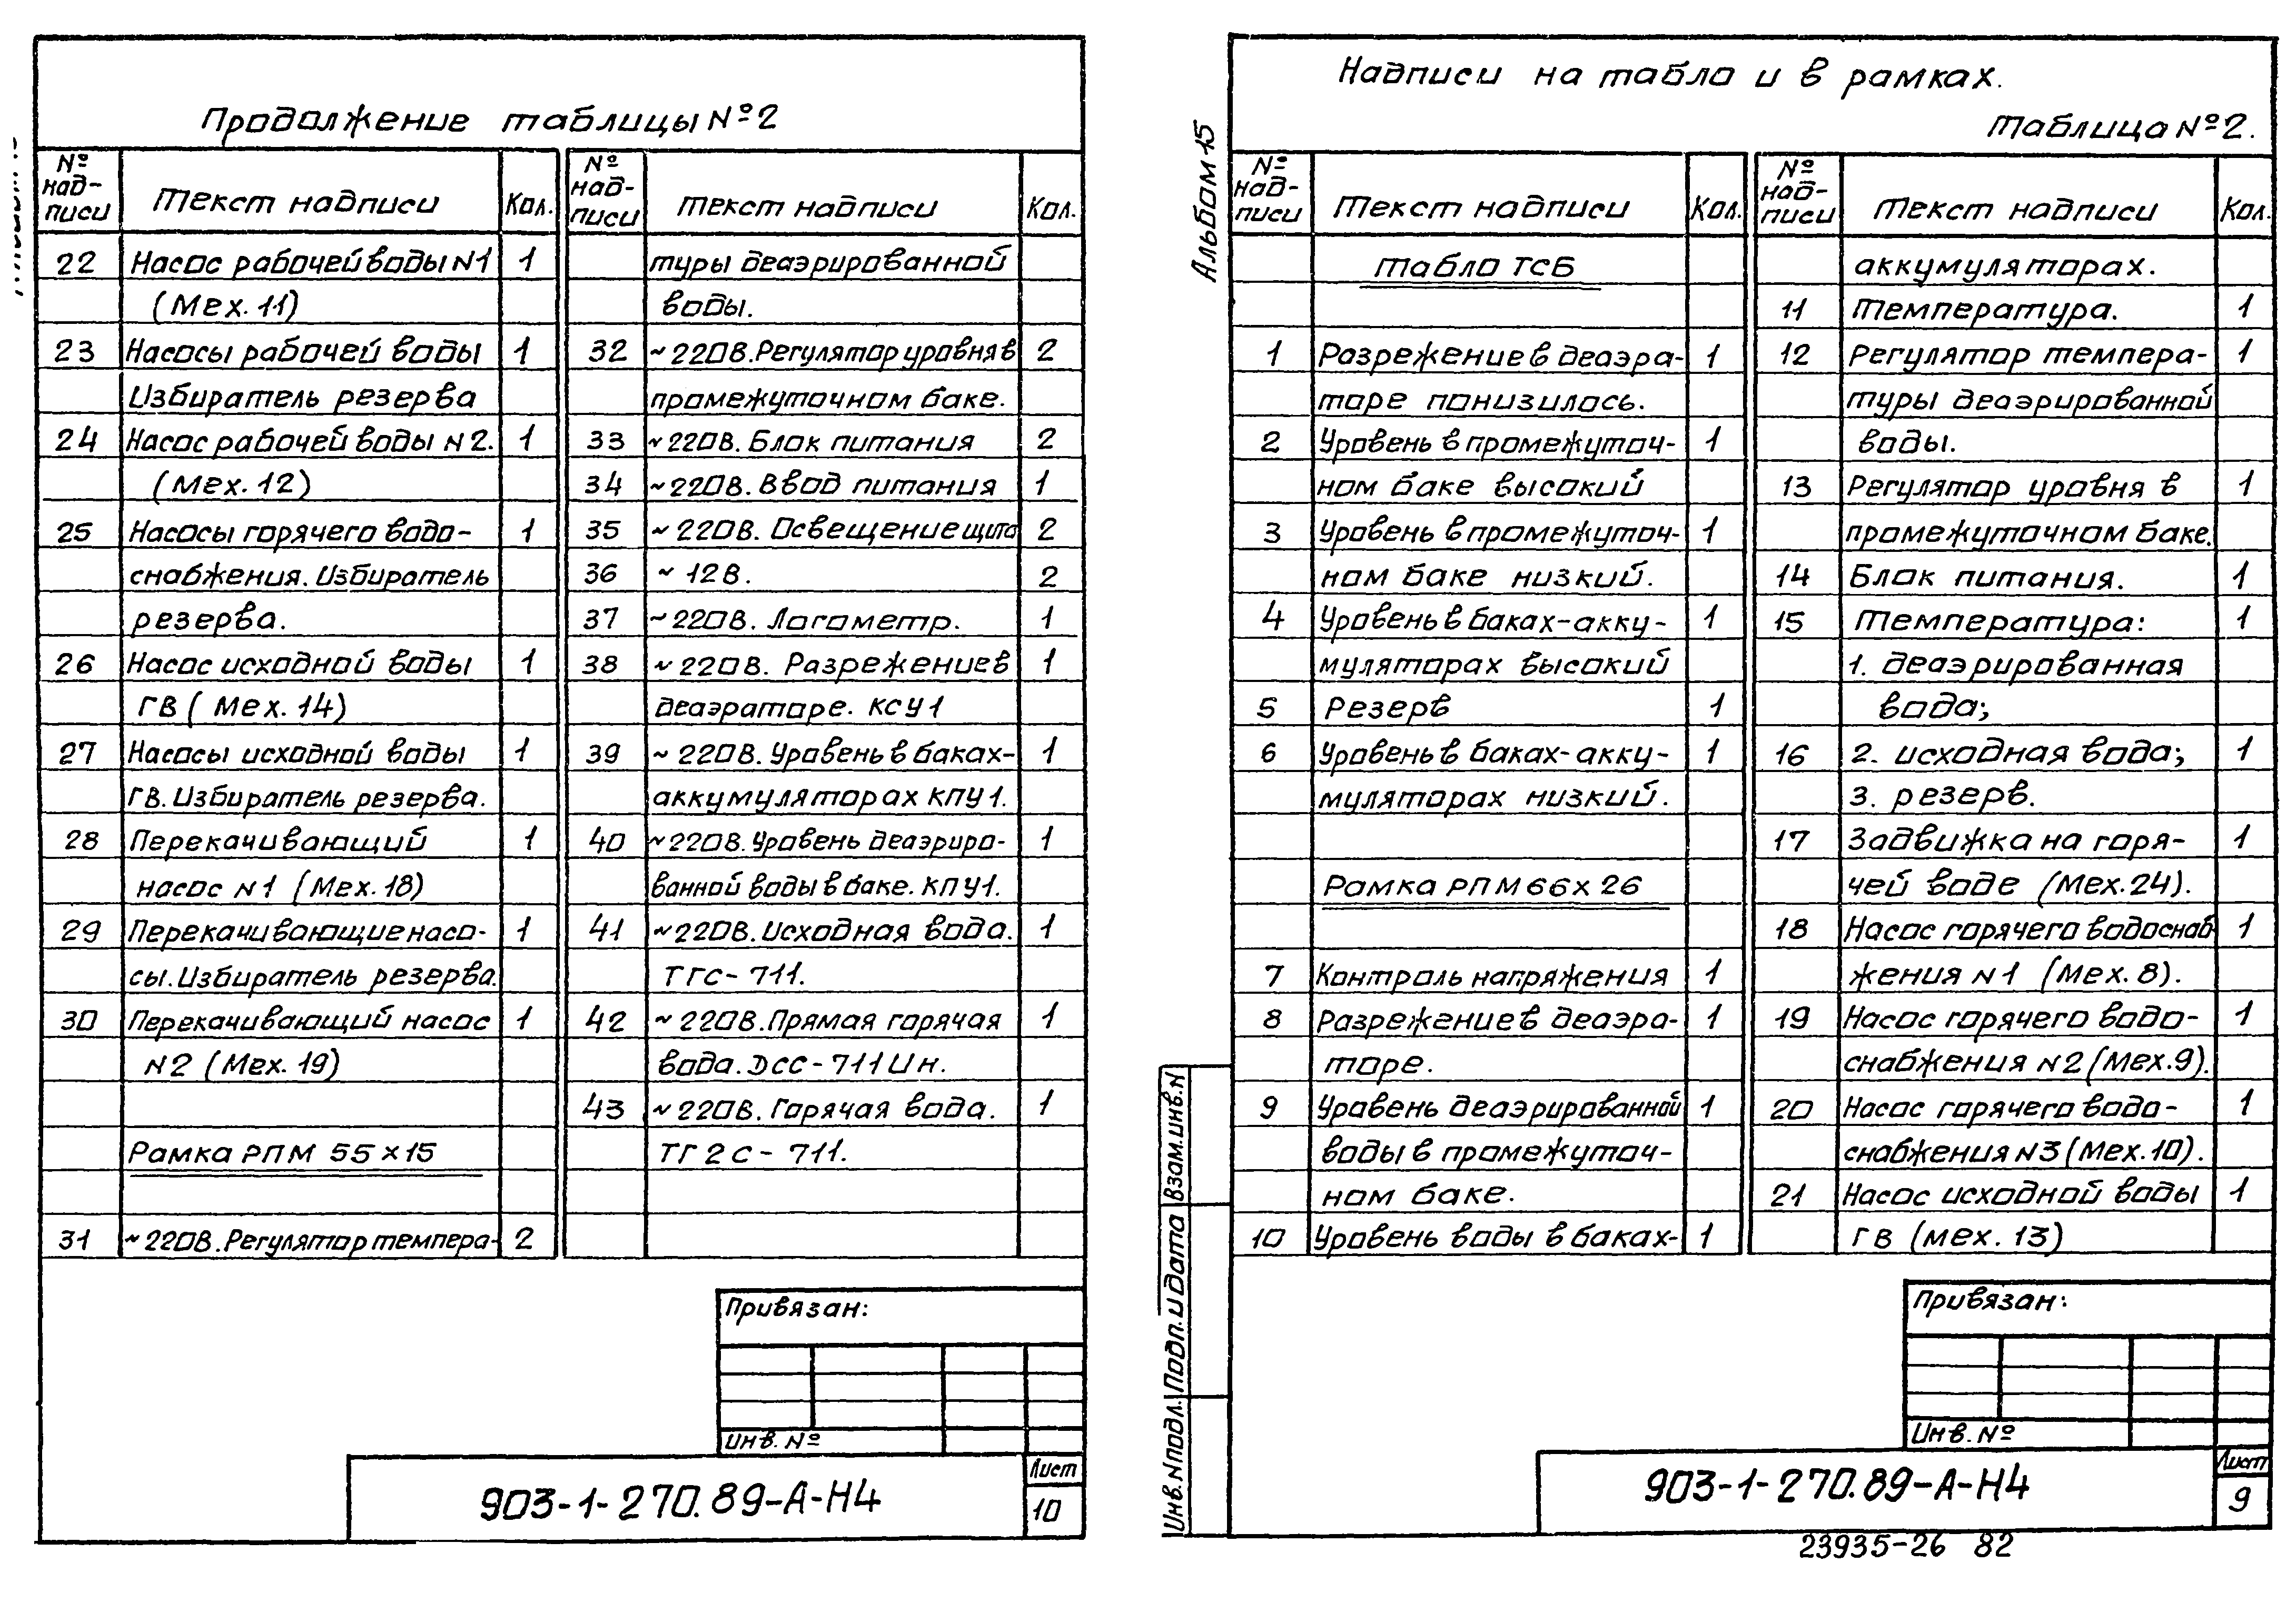 Продолжение таблицы №2
№ надписи Текст надписи Кол. № надписи Текст надписи Кол.
22 Насос рабочей воды N1 1
(Мех. 11)
23 Насосы рабочей воды 1
Избиратель резерва
24 Насос рабочей воды N2. 1
(Мех. 12)
25 Насосы горячего водо- 1
снабжения. Избиратель
резерва.
26 Насос исходной воды 1
ГВ (Мех. 14)
27 Насосы исходной воды 1
ГВ. Избиратель резерва.
28 Перекачивающий 1
насос N1 (Мех. 18)
29 Перекачивающие насо- 1
сы. Избиратель резерва.
30 Перекачивающий насос 1
N2 (Мех. 19)
Рамка РПМ 55×15
31 ~220В. Регулятор темпера- 2
туры деаэрированной
воды.
32 ~220В. Регулятор уровня в 2
промежуточном баке.
33 ~220В. Блок питания 2
34 ~220В. Ввод питания 1
35 ~220В. Освещение щита 2
36 ~12В. 2
37 ~220В. Логометр. 1
38 ~220В. Разрежение в 1
деаэраторе. КСУ1
39 ~220В. Уровень в баках- 1
аккумуляторах КПУ1.
40 ~220В. Уровень деаэриро- 1
ванной воды в баке. КПУ1.
41 ~220В. Исходная вода. 1
ТГС-711.
42 ~220В. Прямая горячая 1
вода. ДСС-711Ин.
43 ~220В. Горячая вода. 1
ТГ2С-711.
Привязан:
Инв. №
903-1-270.89-А-Н4
Лист
10
Альбом 15
Надписи на табло и в рамках.
Таблица №2.
№ надписи Текст надписи Кол. № надписи Текст надписи Кол.
Табло ТСБ
1 Разрежение в деаэра- 1
торе понизилось.
2 Уровень в промежуточ- 1
ном баке высокий
3 Уровень в промежуточ- 1
ном баке низкий.
4 Уровень в баках-акку- 1
муляторах высокий
5 Резерв 1
6 Уровень в баках-акку- 1
муляторах низкий.
Рамка РПМ 66×26
7 Контроль напряжения 1
8 Разрежение в деаэра- 1
торе.
9 Уровень деаэрированной 1
воды в промежуточ-
ном баке.
10 Уровень воды в баках- 1
аккумуляторах.
11 Температура. 1
12 Регулятор темпера- 1
туры деаэрированной
воды.
13 Регулятор уровня в 1
промежуточном баке.
14 Блок питания. 1
15 Температура: 1
1. деаэрированная
вода;
16 2. исходная вода; 1
3. резерв.
17 Задвижка на горя- 1
чей воде (Мех. 24).
18 Насос горячего водоснаб- 1
жения N1 (Мех. 8).
19 Насос горячего водо- 1
снабжения N2 (Мех. 9).
20 Насос горячего водо- 1
снабжения N3 (Мех. 10).
21 Насос исходной воды 1
ГВ (мех. 13)
Инв. N подл. Подп. и дата Взам. инв. N
Привязан:
Инв. №
903-1-270.89-А-Н4
Лист
9
23935-26 82